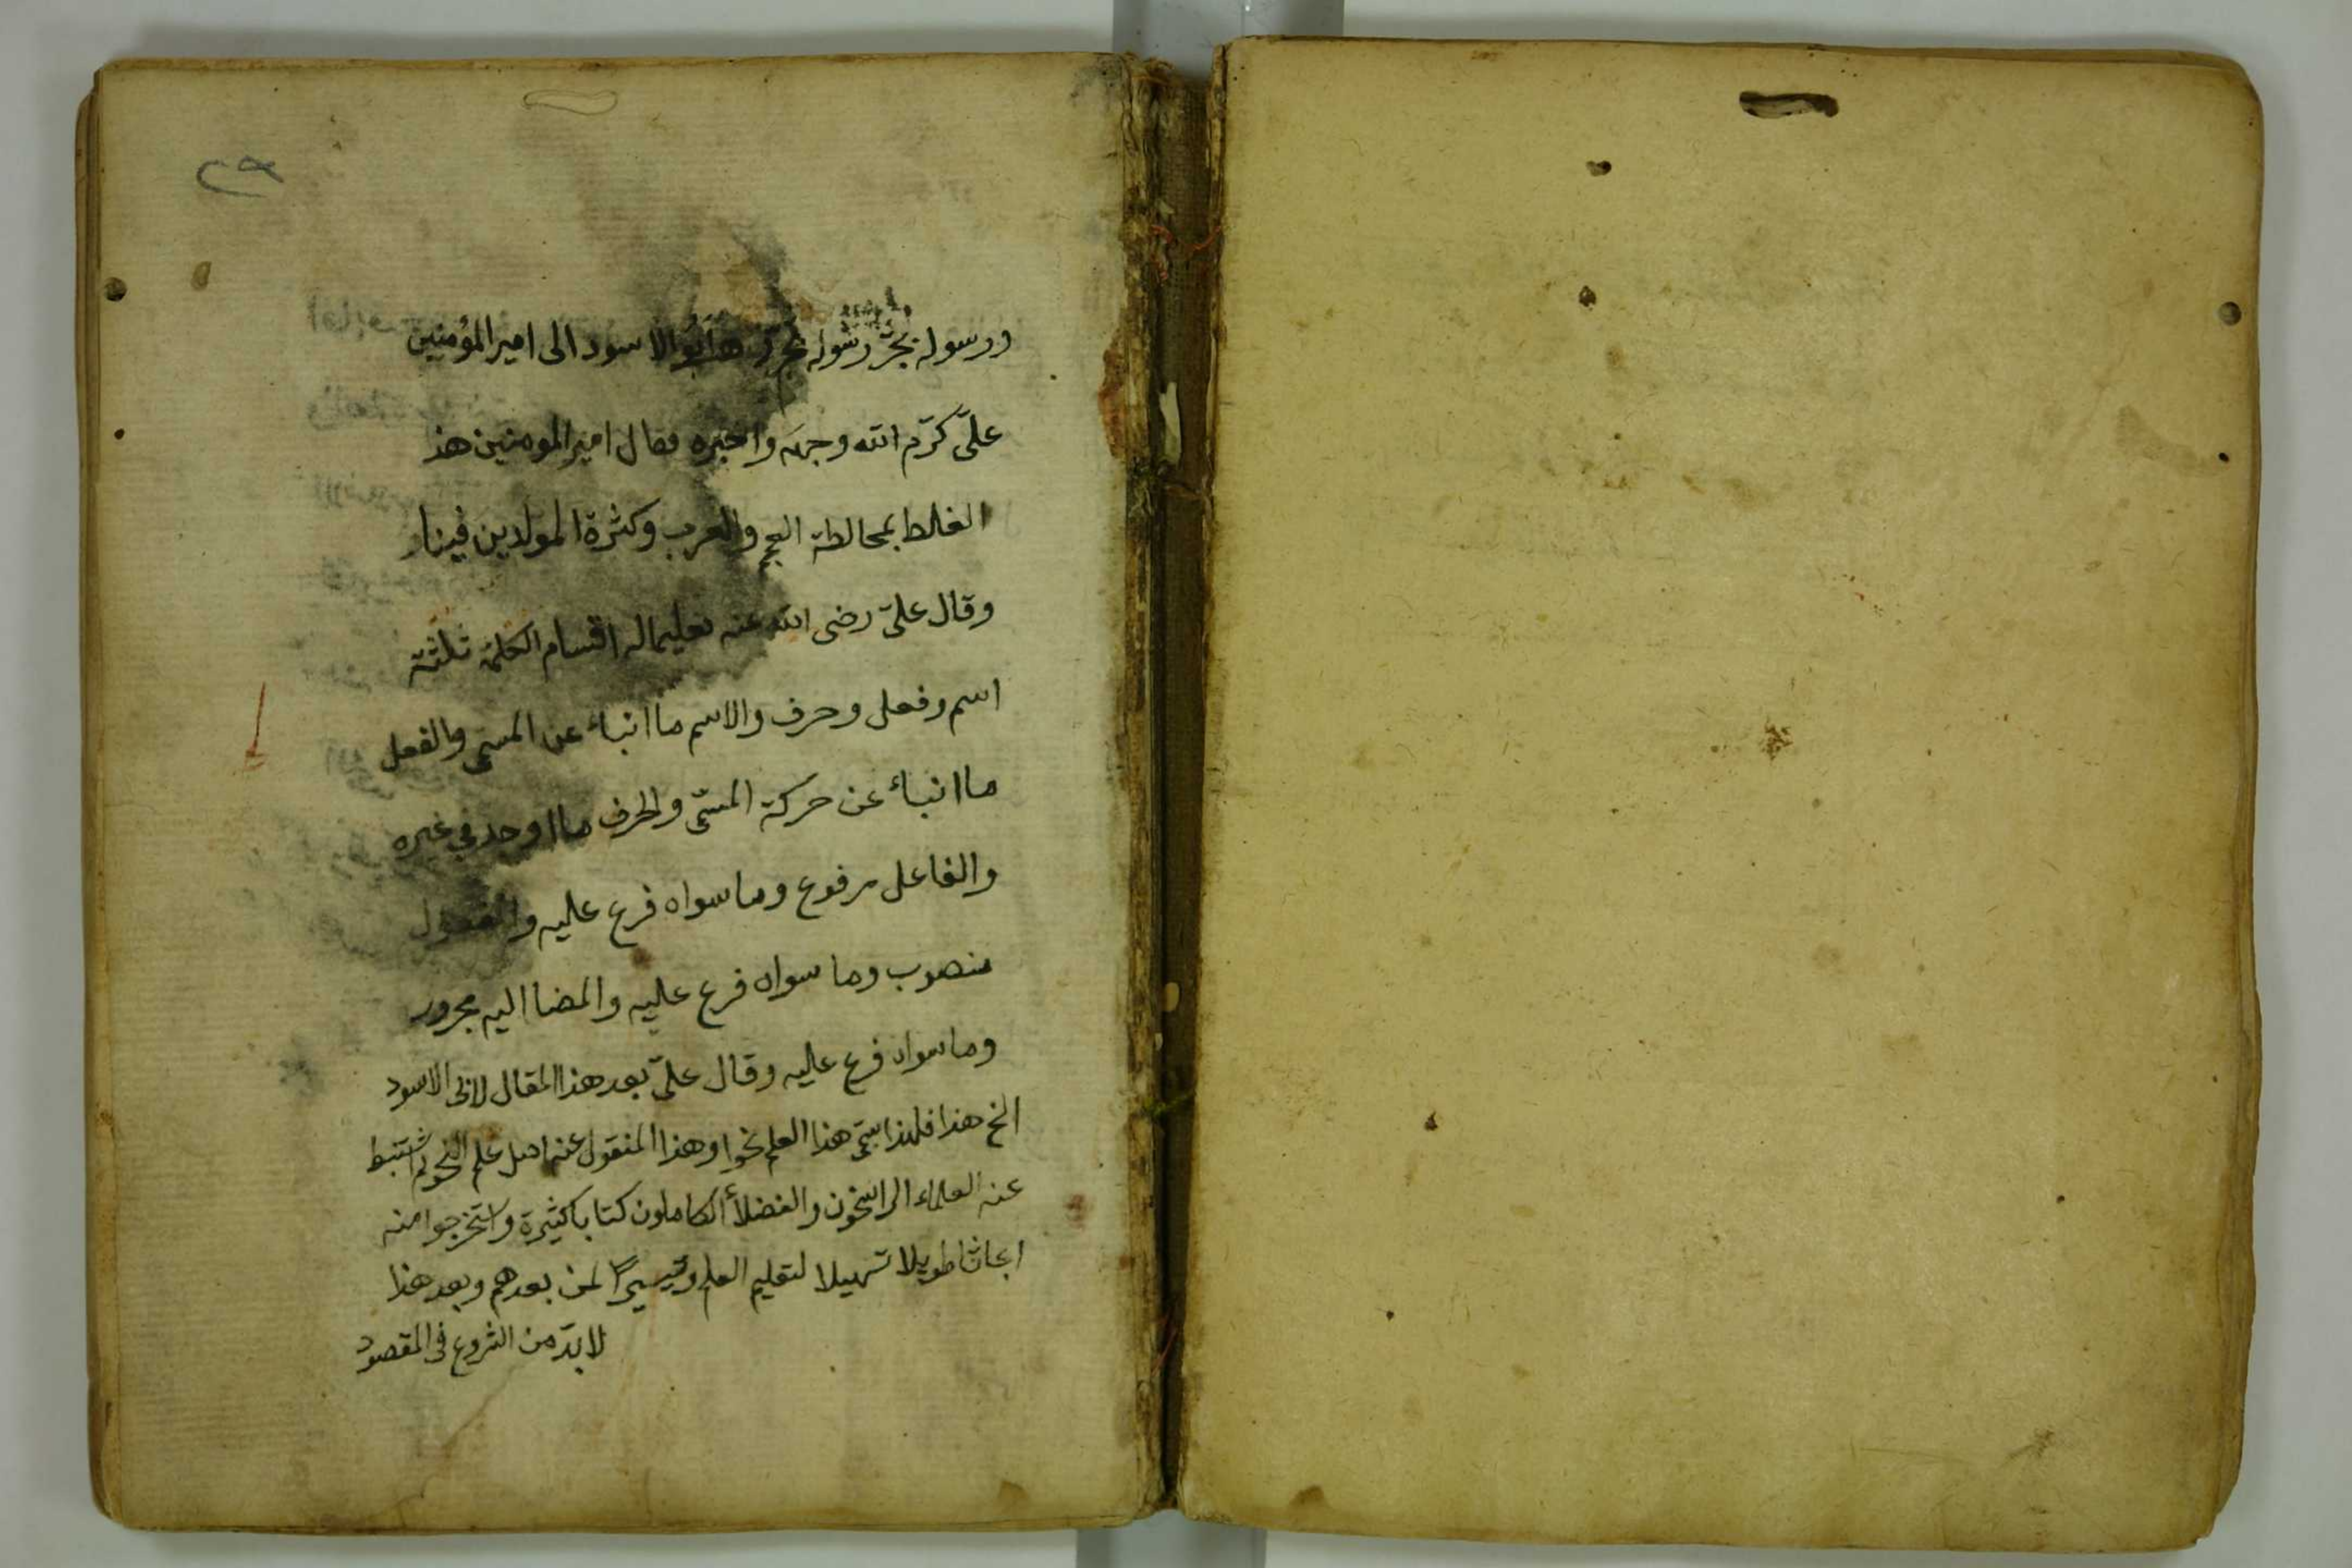 ورسوله بجرّ رسوله ابو الاسود الى امير المؤمنين
علىّ كرّم الله وجهه واخبره فقال امير المومنين هذ
الغلط بمخالطة العجم والعرب وكثرة المولدين فينا
وقال علىّ رضى الله عنه تعليما له اقسام الكلمة ثلثة
اسم وفعل وحرف والاسم ما انباء عن المسمى والفعل
ما انباء عن حركة المسمّى والحرف ما اوجد في غيره
والفاعل مرفوع وما سواه فرع عليه والمفعول
منصوب وما سواه فرع عليه والمضا اليه مجرور
وما سواه فرع عليه وقال علىّ بعد هذا المقال لابى الاسود
انح هذا فلهذا سمّى هذا العلم نحوا وهذا المنقول عنه اصل علم النحو ثم استنبط
عنه العلماء الراسخون والفضلأ الكاملون كتابا كثيرة واستخرجوا منه
ابحاثا طويلا تسهيلا لتعليم العلم وتيسيرًا لمن بعدهم وبعد هذا
لا بدّ من الشروع فى المقصود